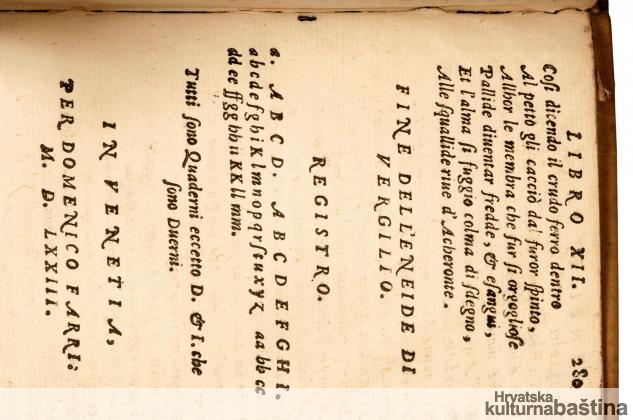 LIBRO XII. 280
Cosi dicendo il crudo ferro dentro
Al petto gli cacciò da' furor spinto,
Allhor le membra che fur si orgogliose
Pallide diuentar fredde, & esangui,
Et l'alma si fuggio colma di sdegno,
Alle squallide riue d'Acheronte.
FINE DELL'ENEIDE DI
VERGILIO.
REGISTRO.
a. ABCD. ABCDEFGHI.
abcdefghiKlmnopqrstuxyz aa bb cc
dd ee ff gg hh ii KK ll mm.
Tutti sono Quaderni eccetto D. & I. che
sono Duerni.
IN VENETIA,
PER DOMENICO FARRI:
M. D. LXXIII.
Hrvatska
kulturnabaština